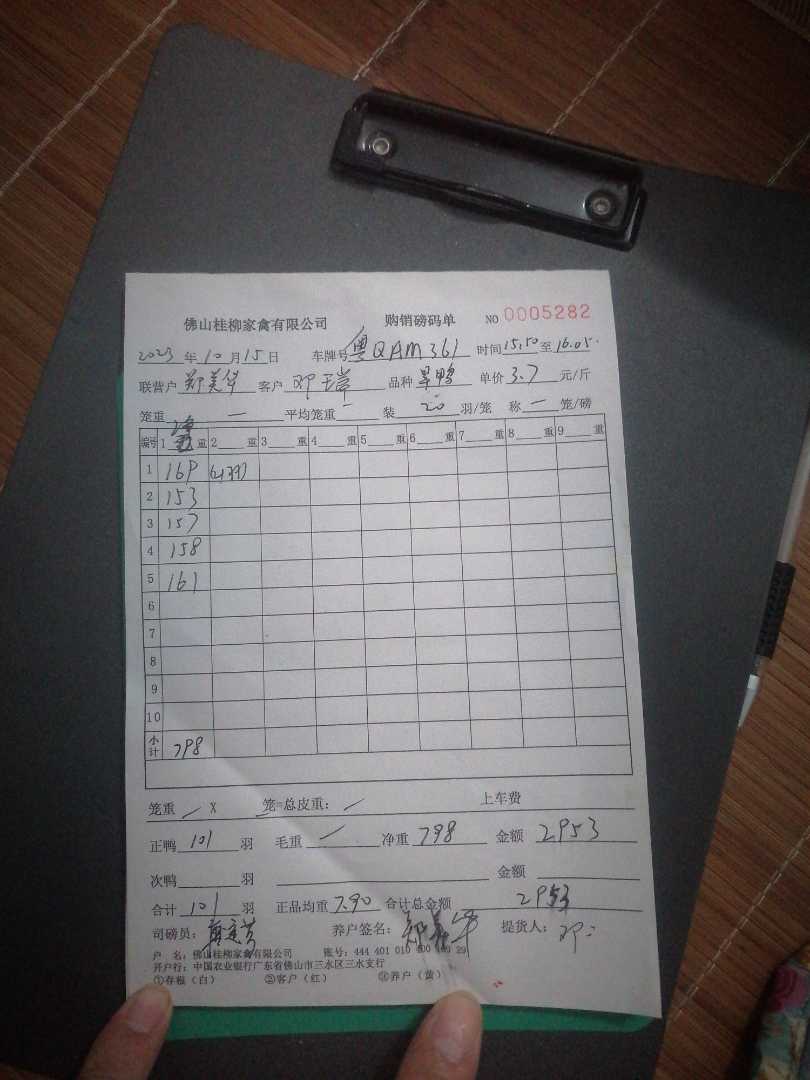 佛山桂柳家禽有限公司 购销磅码单 NO 0005282
2023 年 10 月 15 日 车牌号 粤QAM361 时间 15.50 至 16.05.
联营户 郑美华 客户 邓 品种 旱鸭 单价 3.7 元/斤
笼重 一 平均笼重 一 装 20 羽/笼 称 一 笼/磅
编号 1 净重 2 重 3 重 4 重 5 重 6 重 7 重 8 重 9 重
1 169
2 153
3 157
4 158
5 161
6
7
8
9
10
小计 798
笼重 / X 笼=总皮重: / 上车费
正鸭 101 羽 毛重 / 净重 798 金额 2953
次鸭 羽 金额
合计 101 羽 正品均重 7.90 合计总金额 2953
司磅员: 养户签名: 郑美华 提货人: 邓
户 名: 佛山桂柳家禽有限公司 账号: 444 401 010 400 29
开户行: 中国农业银行广东省佛山市三水区三水支行
①存根(白) ②客户(红) ③养户(黄)